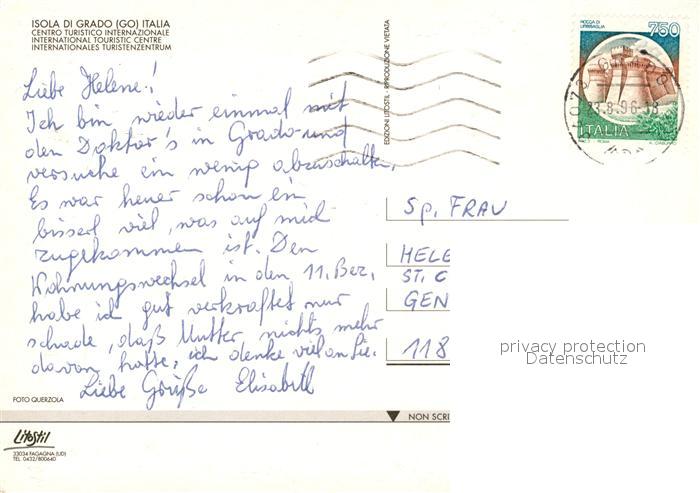 ISOLA DI GRADO (GO) ITALIA
CENTRO TURISTICO INTERNAZIONALE
INTERNATIONAL TOURISTIC CENTRE
INTERNATIONALES TURISTENZENTRUM
Liebe Helene!
Ich bin wieder einmal mit
den Doktor's in Grado und
versuche ein wenig abzuschalten.
Es war heuer schon ein
bisserl viel, was auf mich
zugekommen ist. Den
Wohnungswechsel in den 11. Bez.
habe ich gut verkraftet nur
schade, daß Mutter nichts mehr
davon hatte, ich denke viel an Sie.
Liebe Grüße Elisabeth
FOTO QUERZOLA
Litostil
33034 FAGAGNA (UD)
TEL. 0432/800640
EDIZIONI LITOSTIL - RIPRODUZIONE VIETATA
ROCCA DI
URBISAGLIA
750
ITALIA
ROMA
23.8.96-18
Sp. FRAU
HELE
ST. C
GEN
118
NON SCRI
privacy protection
Datenschutz